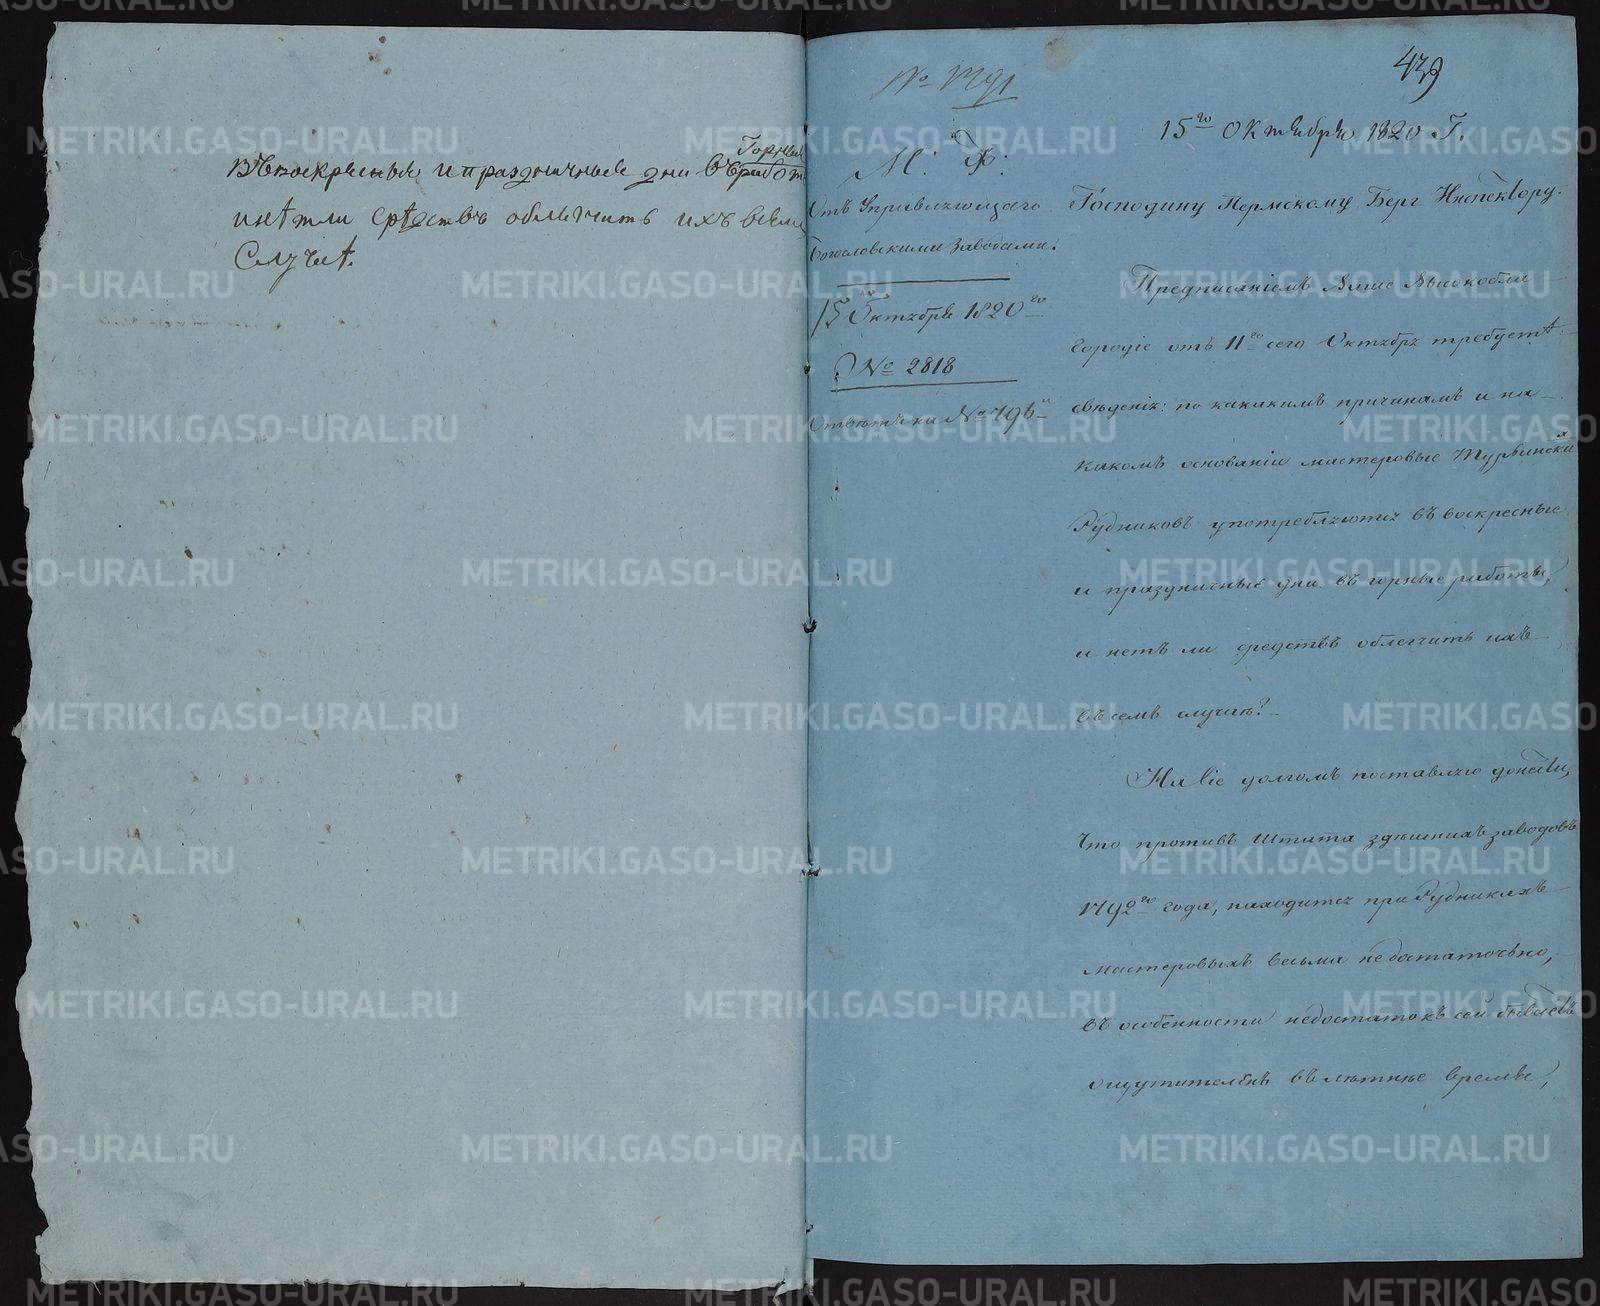 въ воскресныя и праздничныя дни въ Горныя работ
и нѣтли средствъ облегчить ихъ всемъ
случаѣ.
439
15го Октября 1820 Г.
М: Ф:
Отъ Управляющаго
Богословскими заводами.
15 Октября 1820го
№ 2818
Ответъ на № 796й
Господину Пермскому Берг Инспектору.
Предписаніемъ Ваше Высокобла
городіе отъ 11го сего Октября требуетѣ
свѣденія: по какимъ причинамъ и на
какомъ основаніи мастеровые Турьинских
Рудниковъ употребляются въ воскресные
и праздничные дни въ горные работы,
и нетъ ли средствъ облегчить ихъ
въ семъ случаѣ?
На сіе долгомъ поставляю донести,
что противъ Штата здѣшнихъ заводовъ
1792го года, находится при Рудникахъ
мастеровыхъ весьма недостаточно,
въ особенности недостатокъ сей бываетъ
ощутителенъ въ лѣтнѣе время,
METRIKI.GASO-URAL.RU